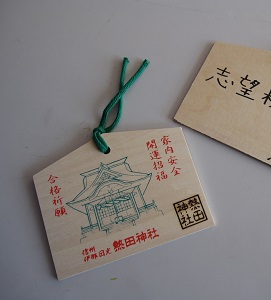 家内安全
開運招福
合格祈願
信州
伊那国史
熱田神社
熱田
神社
志望